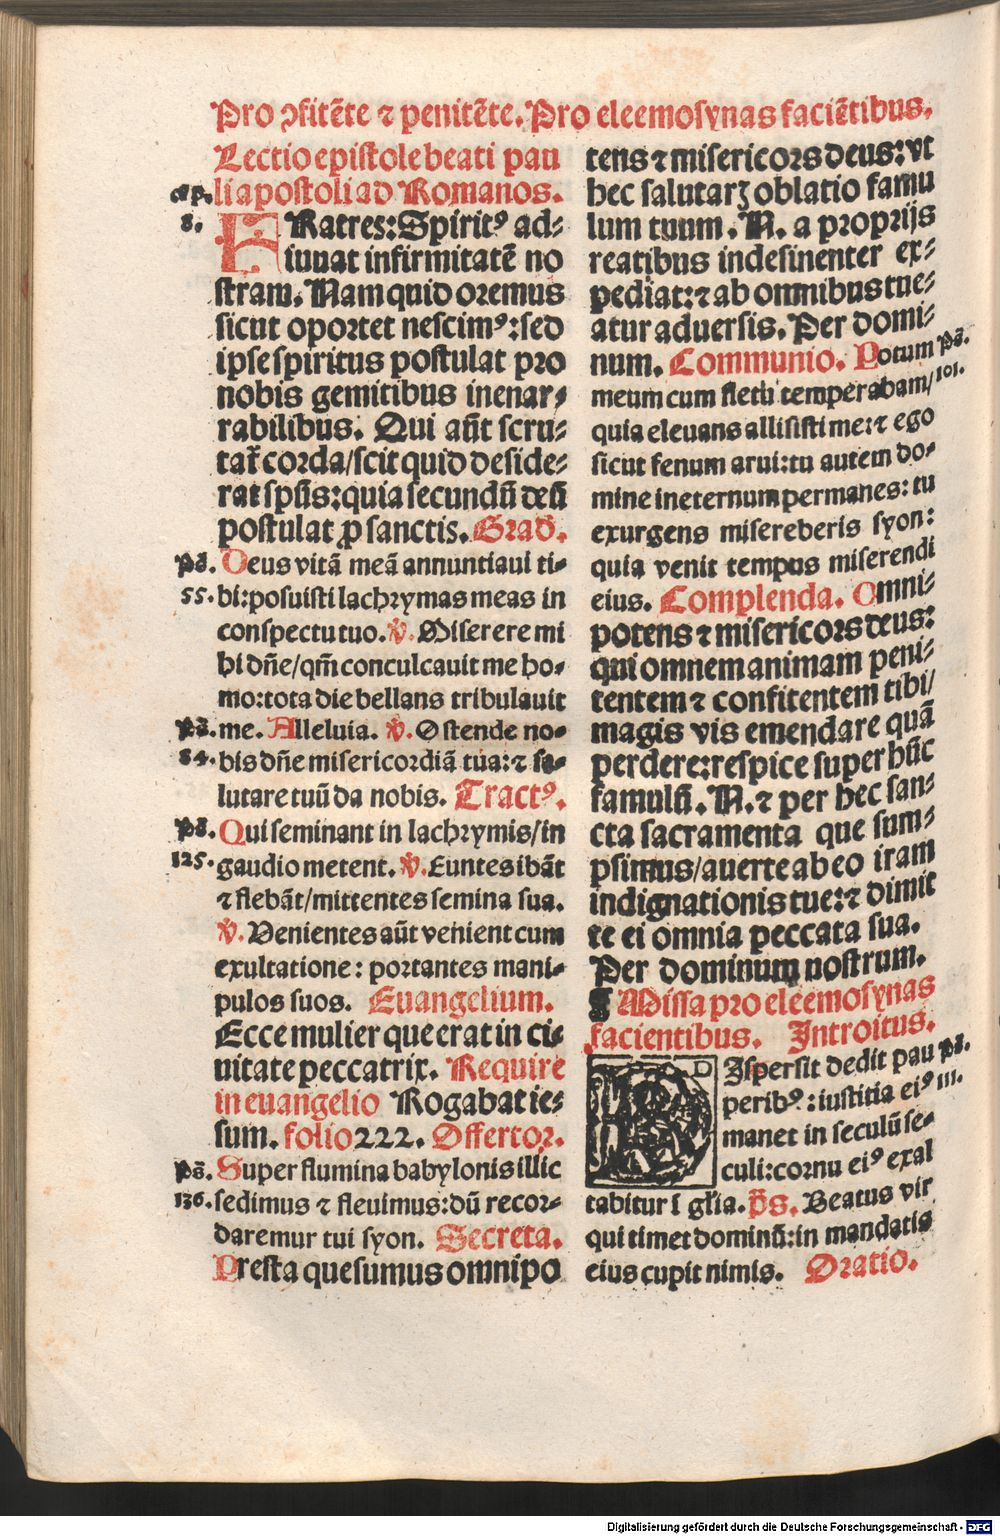 Pro ɔfitẽte ⁊ penitẽte. Pro eleemosynas faciẽtibus.
Lectio epistole beati pau
li apostoli ad Romanos.
ap.
8.
FRatres: Spiritꝰ ad⸗
iuuat infirmitatẽ no
stram. Nam quid oremus
sicut oportet nescimꝰ: sed
ipse spiritus postulat pro
nobis gemitibus inenar⸗
rabilibus. Qui aũt scru⸗
tat᷑ corda/scit quid deside⸗
rat spũs: quia secundũ deũ
postulat ꝓ sanctis. Grad̃.
Pã. Deus vitã meã annuntiaui ti⸗
55. bi: posuisti lachrymas meas in
conspectu tuo. ℣. Miserere mi
hi dñe/qm̃ conculcauit me ho⸗
mo: tota die bellans tribulauit
Pã. me. Alleluia. ℣. Ostende no⸗
84. bis dñe misericordiã tuã: ⁊ sa⸗
lutare tuũ da nobis. Tractꝰ.
Pã. Qui seminant in lachrymis/in
125. gaudio metent. ℣. Euntes ibãt
⁊ flebãt/mittentes semina sua.
℣. Venientes aũt venient cum
exultatione: portantes mani⸗
pulos suos. Euangelium.
Ecce mulier que erat in ci⸗
uitate peccatrix. Require
in euangelio Rogabat ie⸗
sum. folio 222. Offertor.
Pã. Super flumina babylonis illic
136. sedimus ⁊ fleuimus: dũ recor⸗
daremur tui syon. Secreta.
Presta quesumus omnipo
tens ⁊ misericors deus: vt
hec salutarꝫ oblatio famu
lum tuum. N. a proprijs
reatibus indesinenter ex⸗
pediat: ⁊ ab omnibus tue⸗
atur aduersis. Per domi⸗
num. Communio. Potum Pã.
meum cum fletu temperabam/ 101.
quia eleuans allisisti me: ⁊ ego
sicut fenum arui: tu autem do⸗
mine in eternum permanes: tu
exurgens misereberis syon:
quia venit tempus miserendi
eius. Complenda. Omni⸗
potens ⁊ misericors deus:
qui omnem animam peni⸗
tentem ⁊ confitentem tibi/
magis vis emendare quã
perdere: respice super hũc
famulũ. N. ⁊ per hec san⸗
cta sacramenta que sum⸗
psimus/auerte ab eo iram
indignationis tue: ⁊ dimit
te ei omnia peccata sua.
Per dominum nostrum.
¶ Missa pro eleemosynas
facientibus. Introitus.
DIspersit dedit pau Pã.
peribꝰ: iustitia eiꝰ 111.
manet in seculũ se⸗
culi: cornu eiꝰ exal
tabitur ĩ gl̃ia. p̃s. Beatus vir
qui timet dominũ: in mandatis
eius cupit nimis. Oratio.
Digitalisierung gefördert durch die Deutsche Forschungsgemeinschaft - DFG